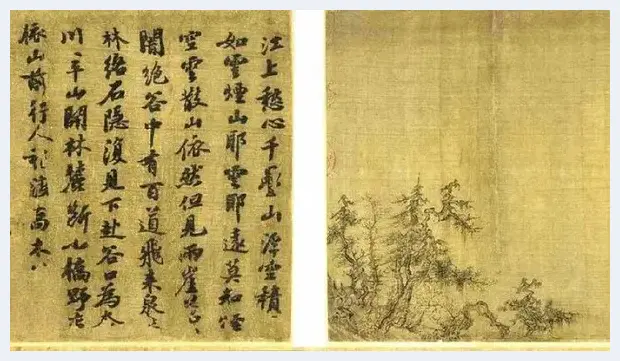 江上愁心千疊山浮空積
如雲煙山耶雲耶遠莫知煙
空雲散山依然但見兩崖蒼々
闇絕谷中有百道飛來泉
林絡石隱復見下赴谷口為奔
川々平山開林麓斷小橋野店
依山前行人稍度喬木